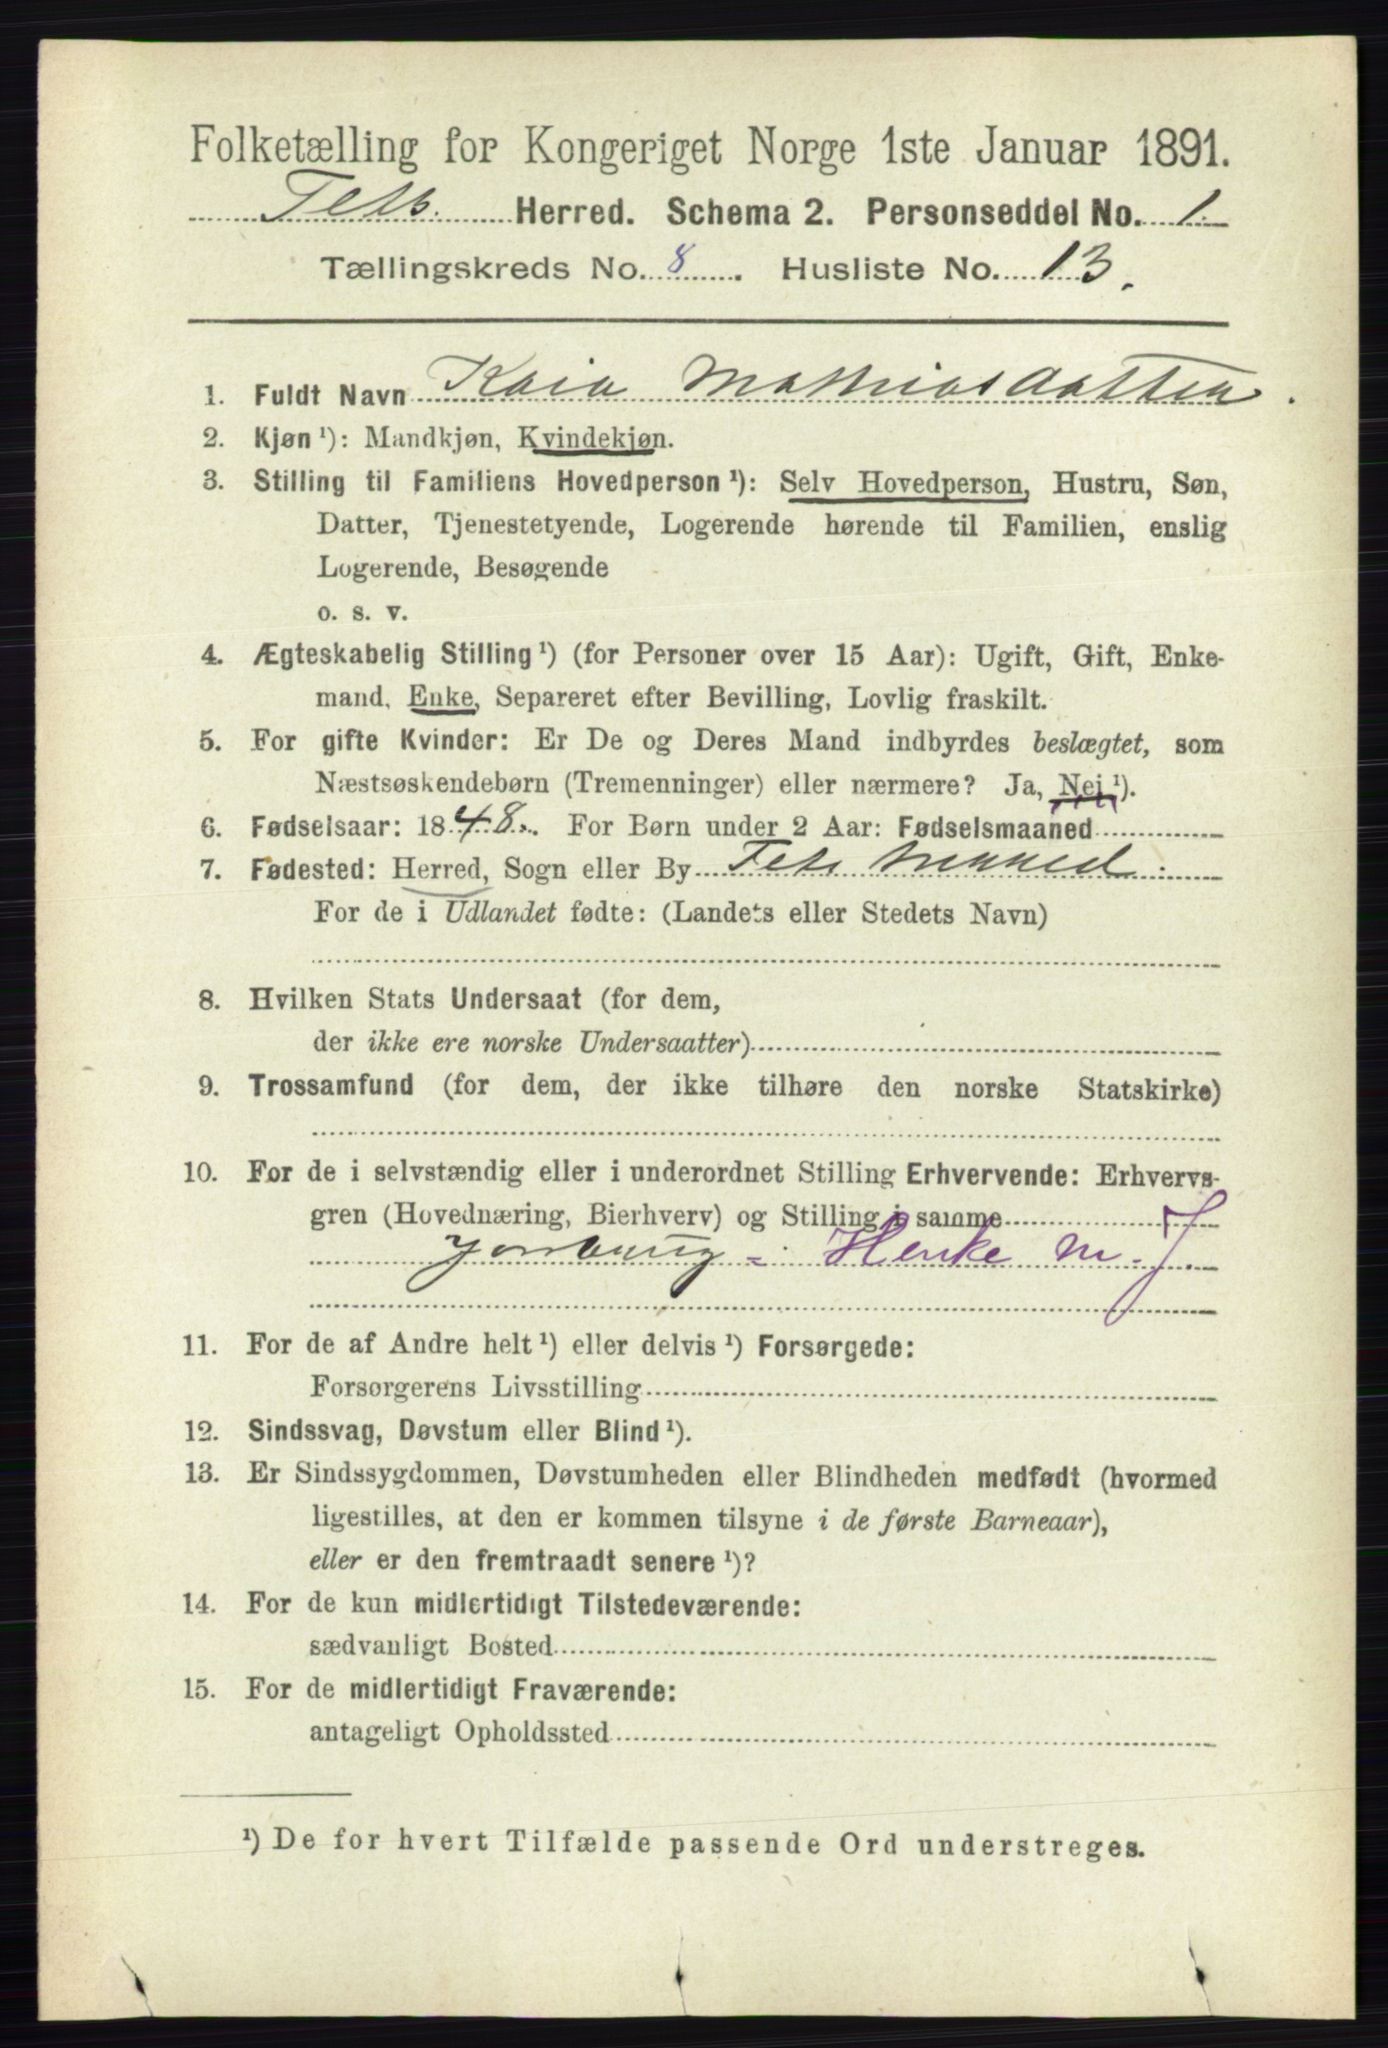 Folketælling for Kongeriget Norge 1ste Januar 1891.
Herred. Schema 2. Personseddel No. 1
Tællingskreds No. 8. Husliste No. 13.
1. Fuldt Navn Kaia Mathiasdatter.
2. Kjøn ¹): Mandkjøn, Kvindekjøn.
3. Stilling til Familiens Hovedperson ¹): Selv Hovedperson, Hustru, Søn,
Datter, Tjenestetyende, Logerende hørende til Familien, enslig
Logerende, Besøgende
o. s. v.
4. Ægteskabelig Stilling ¹) (for Personer over 15 Aar): Ugift, Gift, Enke-
mand, Enke, Separeret efter Bevilling, Lovlig fraskilt.
5. For gifte Kvinder: Er De og Deres Mand indbyrdes beslægtet, som
Næstsøskendebørn (Tremenninger) eller nærmere? Ja, Nei ¹).
6. Fødselsaar: 1848. For Børn under 2 Aar: Fødselsmaaned
7. Fødested: Herred, Sogn eller By
For de i Udlandet fødte: (Landets eller Stedets Navn)
8. Hvilken Stats Undersaat (for dem,
der ikke ere norske Undersaatter)
9. Trossamfund (for dem, der ikke tilhøre den norske Statskirke)
10. For de i selvstændig eller i underordnet Stilling Erhvervende: Erhvervs-
gren (Hovednæring, Bierhverv) og Stilling i samme
m. J.
11. For de af Andre helt ¹) eller delvis ¹) Forsørgede:
Forsørgerens Livsstilling
12. Sindssvag, Døvstum eller Blind ¹).
13. Er Sindssygdommen, Døvstumheden eller Blindheden medfødt (hvormed
ligestilles, at den er kommen tilsyne i de første Barneaar),
eller er den fremtraadt senere ¹)?
14. For de kun midlertidigt Tilstedeværende:
sædvanligt Bosted
15. For de midlertidigt Fraværende:
antageligt Opholdssted
¹) De for hvert Tilfælde passende Ord understreges.